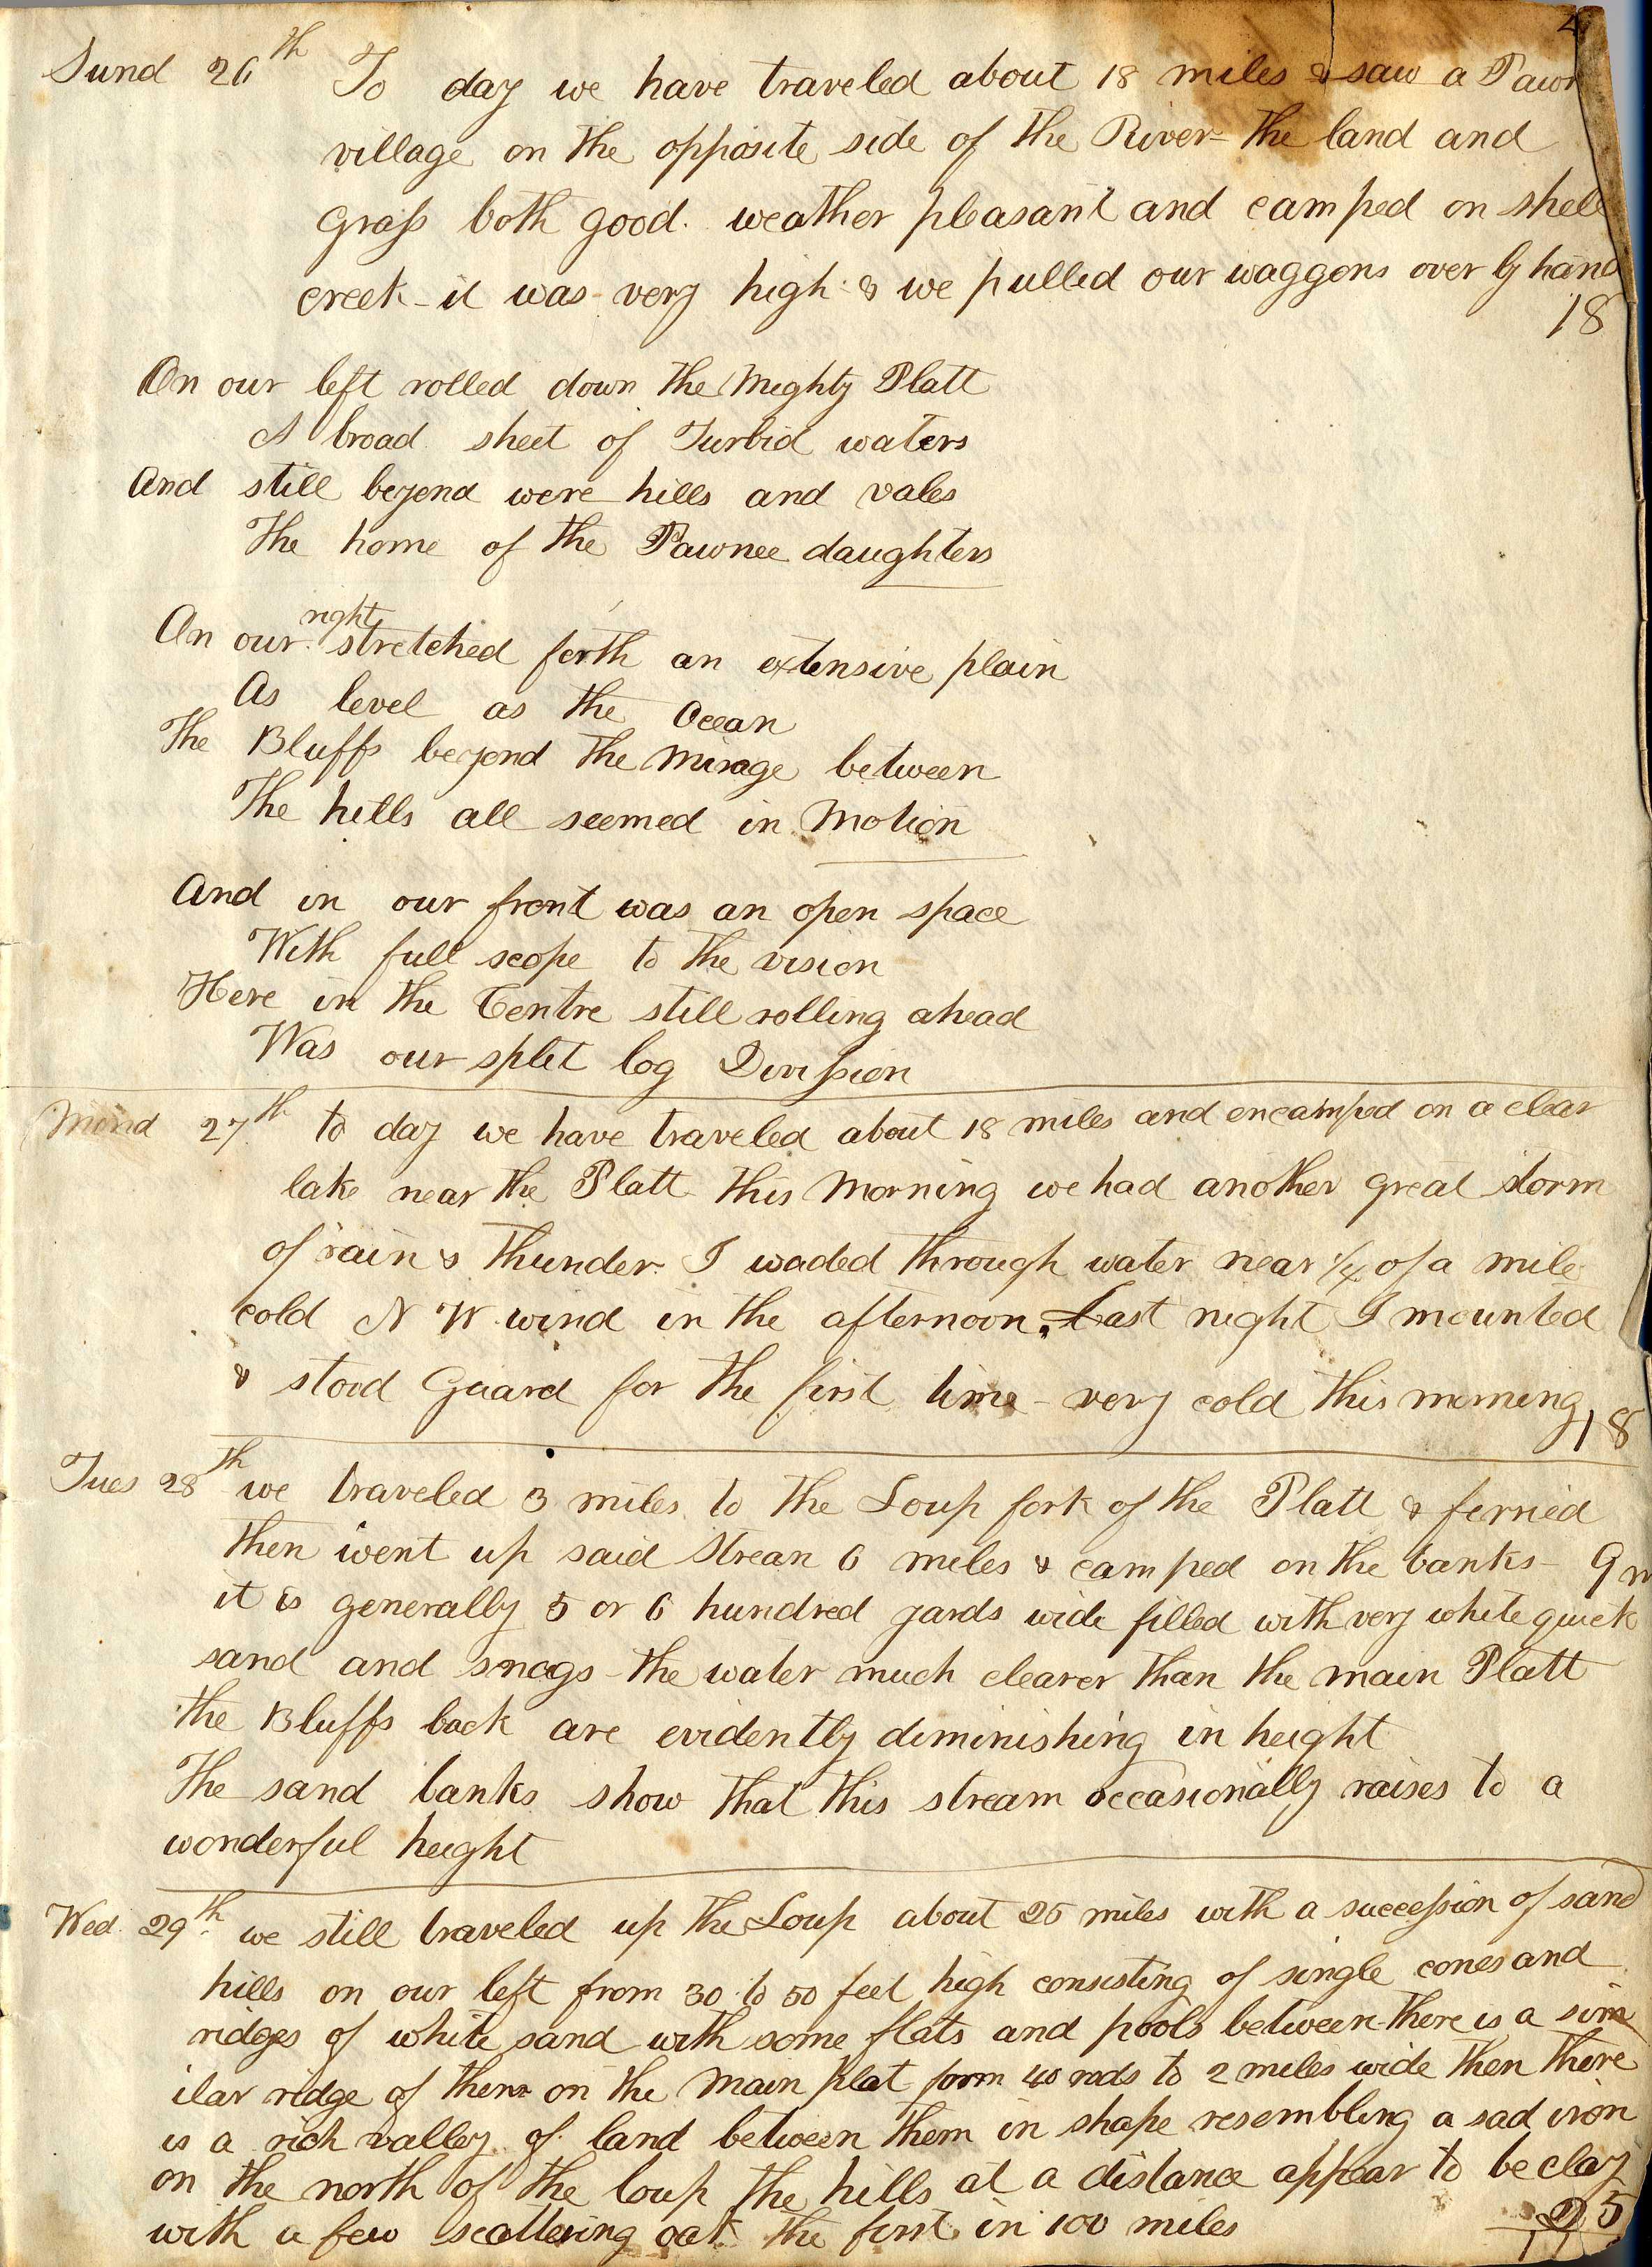 Sund 26th To day we have traveled about 18 miles & saw a Pawn
village on the opposite side of the River - the land and
grass both good. weather pleasant and camped on shell
creek - it was very high & we pulled our waggons over by hand
18
On our left rolled down the Mighty Platt
A broad sheet of Turbid waters
And still beyond were hills and vales
The home of the Pawnee daughters
On our right stretched forth an extensive plain
As level as the Ocean
The Bluffs beyond the mirage between
The hills all seemed in Motion
And in our front was an open space
With full scope to the vision
Here in the Centre still rolling ahead
Was our split log Division
Mond 27th to day we have traveled about 18 miles and encamped on a clear
lake near the Platt this Morning we had another great storm
of rain & thunder I waded through water near 1/4 of a mile
cold N W wind in the afternoon. Last night I mounted
& stood Guard for the first time - very cold this morning
18
Tues 28th we traveled 3 miles to the Loup fork of the Platt & ferried
then went up said strean 6 miles & camped on the banks - 9 m
it is generally 5 or 6 hundred yards wide filled with very white quick
sand and snags - the water much clearer than the main Platt
the Bluffs back are evidently diminishing in height
The sand banks show that this stream occasionally raises to a
wonderful height
Wed. 29th we still traveled up the Loup about 25 miles with a succession of sand
hills on our left from 30 to 50 feet high consisting of single cones and
ridges of white sand with some flats and pools between there is a sim
ilar ridge of them on the Main Plat form 40 rods to 2 miles wide then there
is a rich valley of land between them in shape resembling a sad iron
on the north of the loup the hills at a distance appear to be clay
with a few scattering oak the first in 100 miles
25